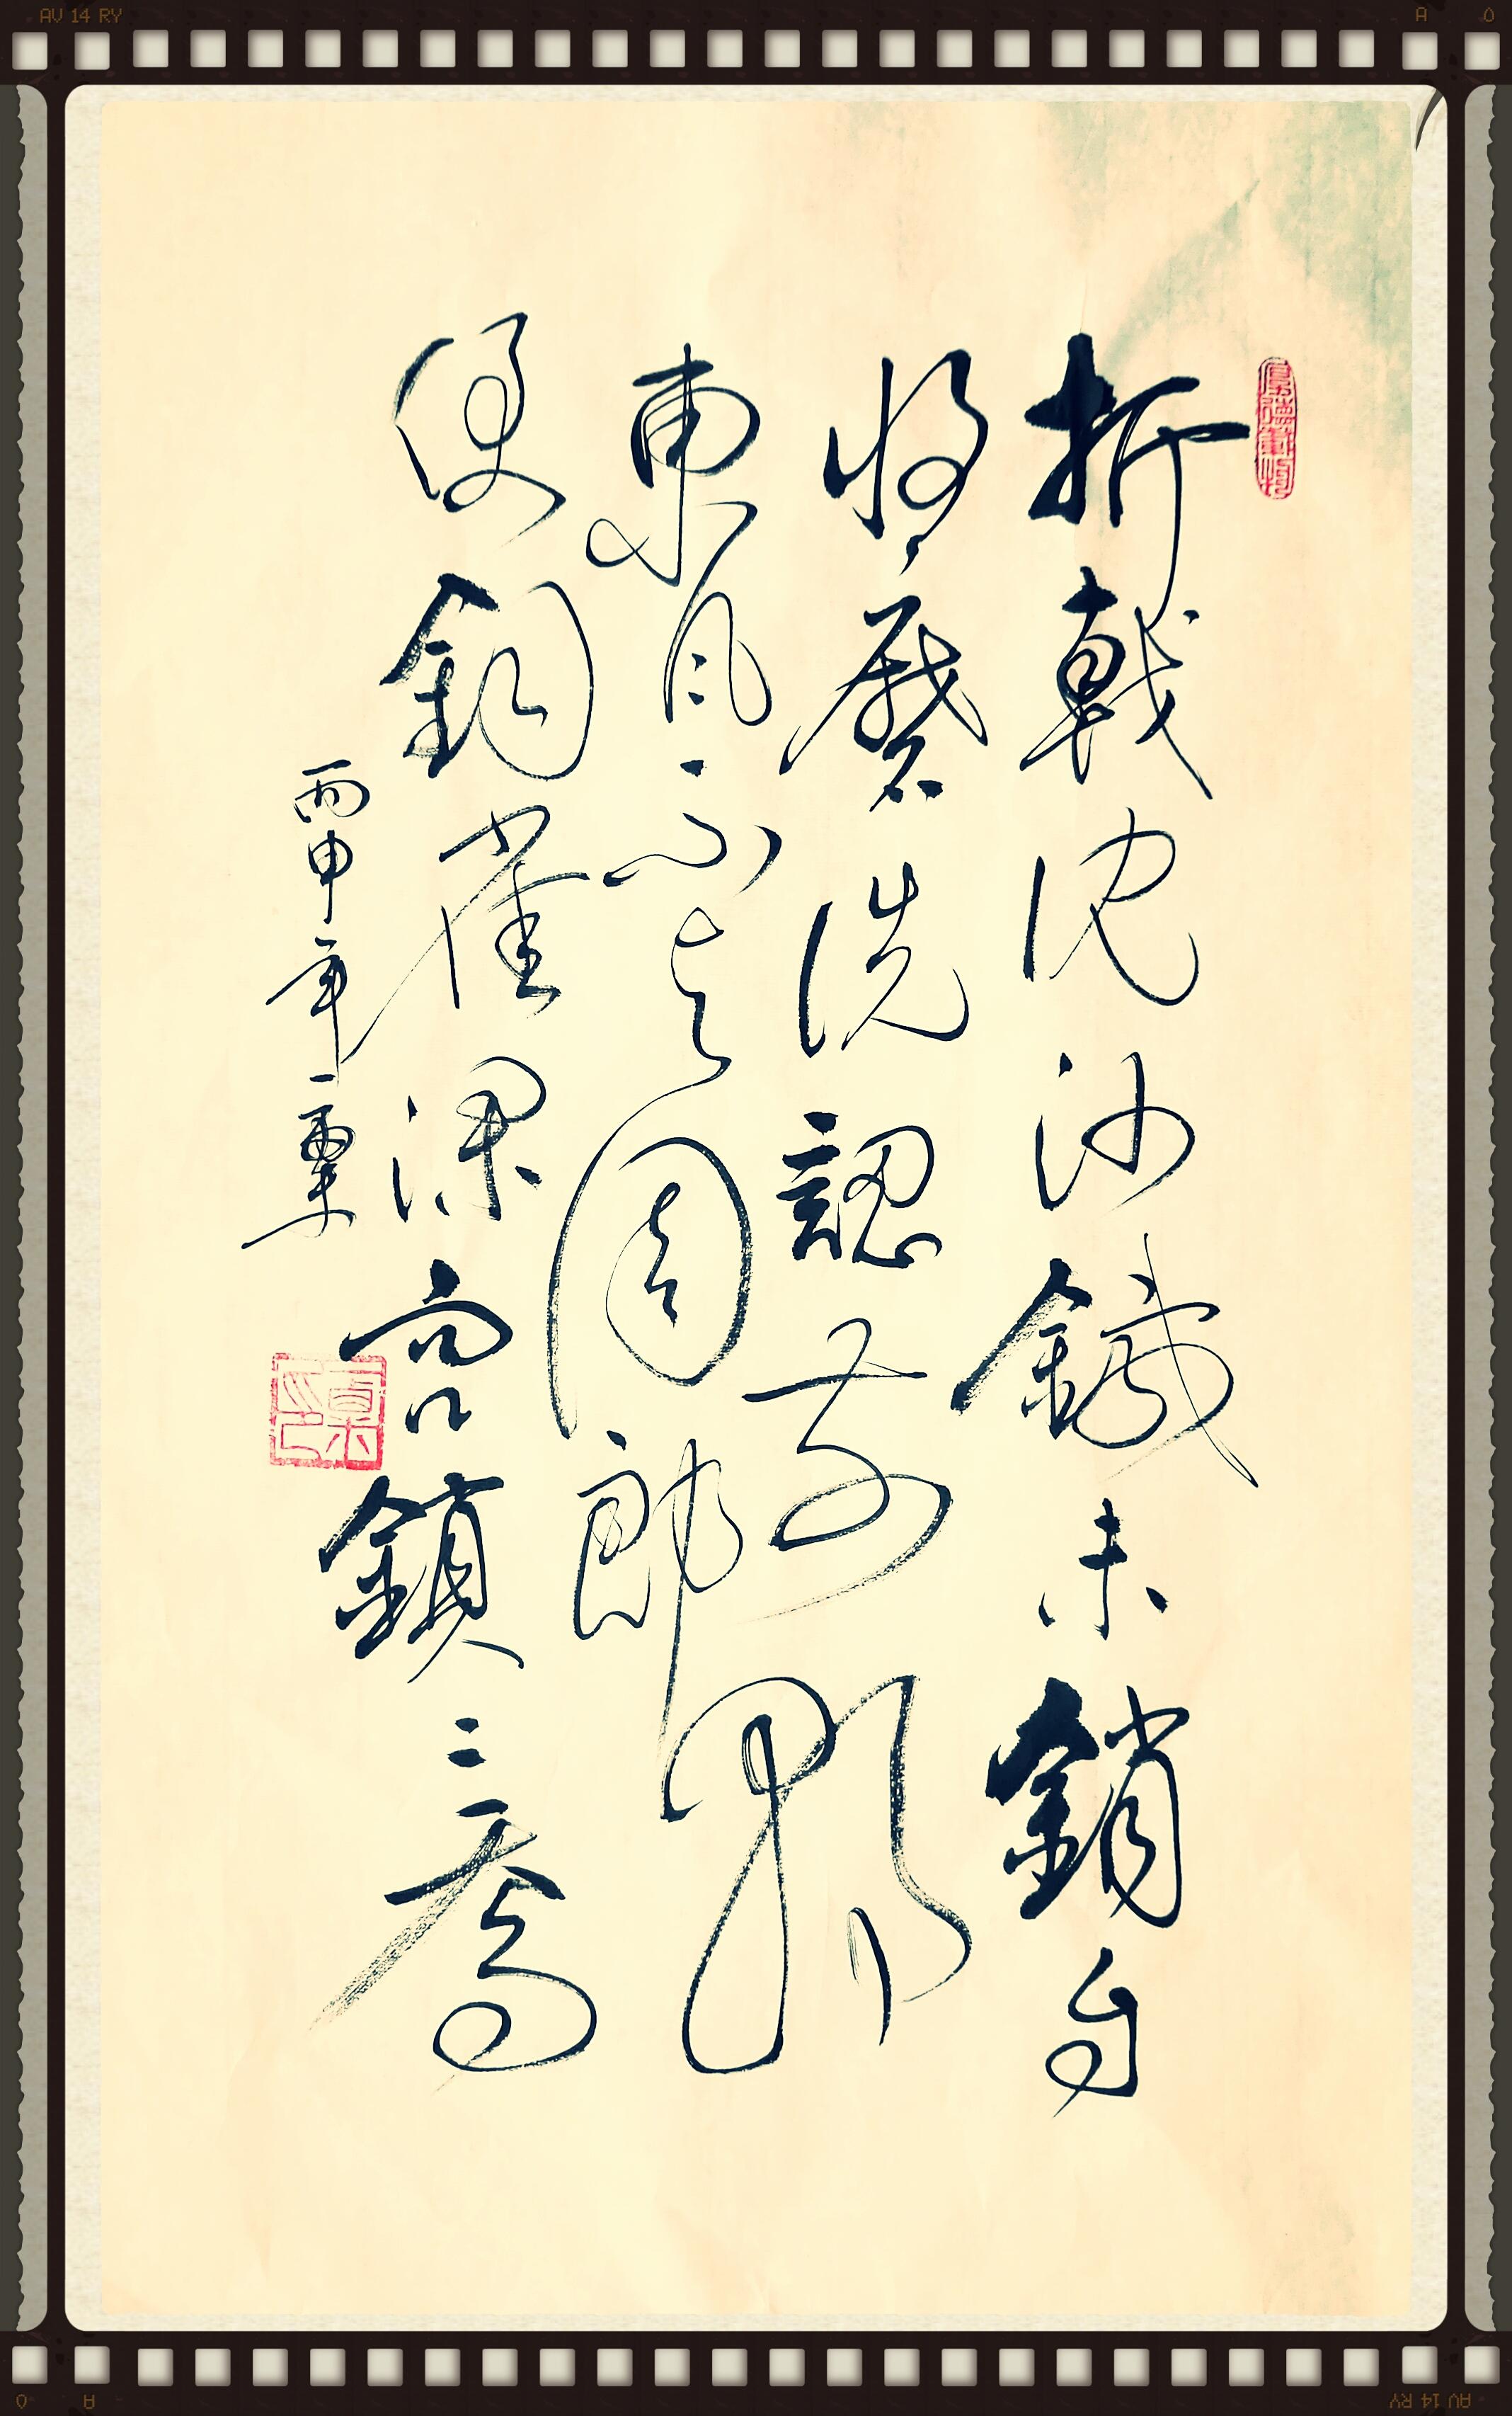 AV 14 RY A O
折戟沈沙鐵未銷自
將磨洗認前朝
東風不與周郎
便銅雀深宮鎖二喬
丙申年
O A AV 14 RY